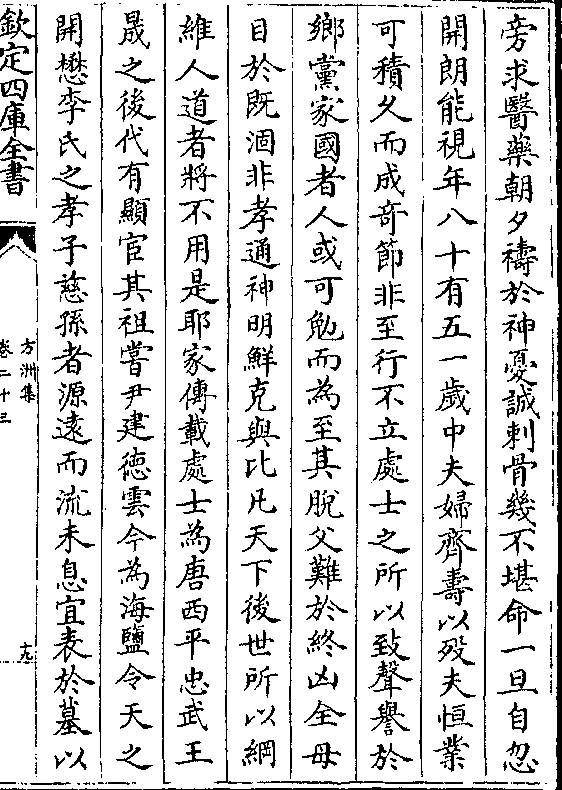 旁求醫藥朝夕禱於神憂誠刺骨幾不堪命一旦自忽
開朗能視年八十有五一歲中夫婦齊壽以歿夫恒業
可積久而成竒節非至行不立處士之所以致聲譽於
鄉黨家國者人或可勉而為至其脫父難於終凶全母
目於既涸非孝通神明鮮克與比凡天下後世所以綱
維人道者將不用是耶家傳載處士為唐西平忠武王
晟之後代有顯宦其祖嘗尹建徳雲今為海鹽令天之
開懋李氏之孝子慈孫者源逺而流未息宜表於墓以
欽定四庫全書
方洲集
卷二十三
十九